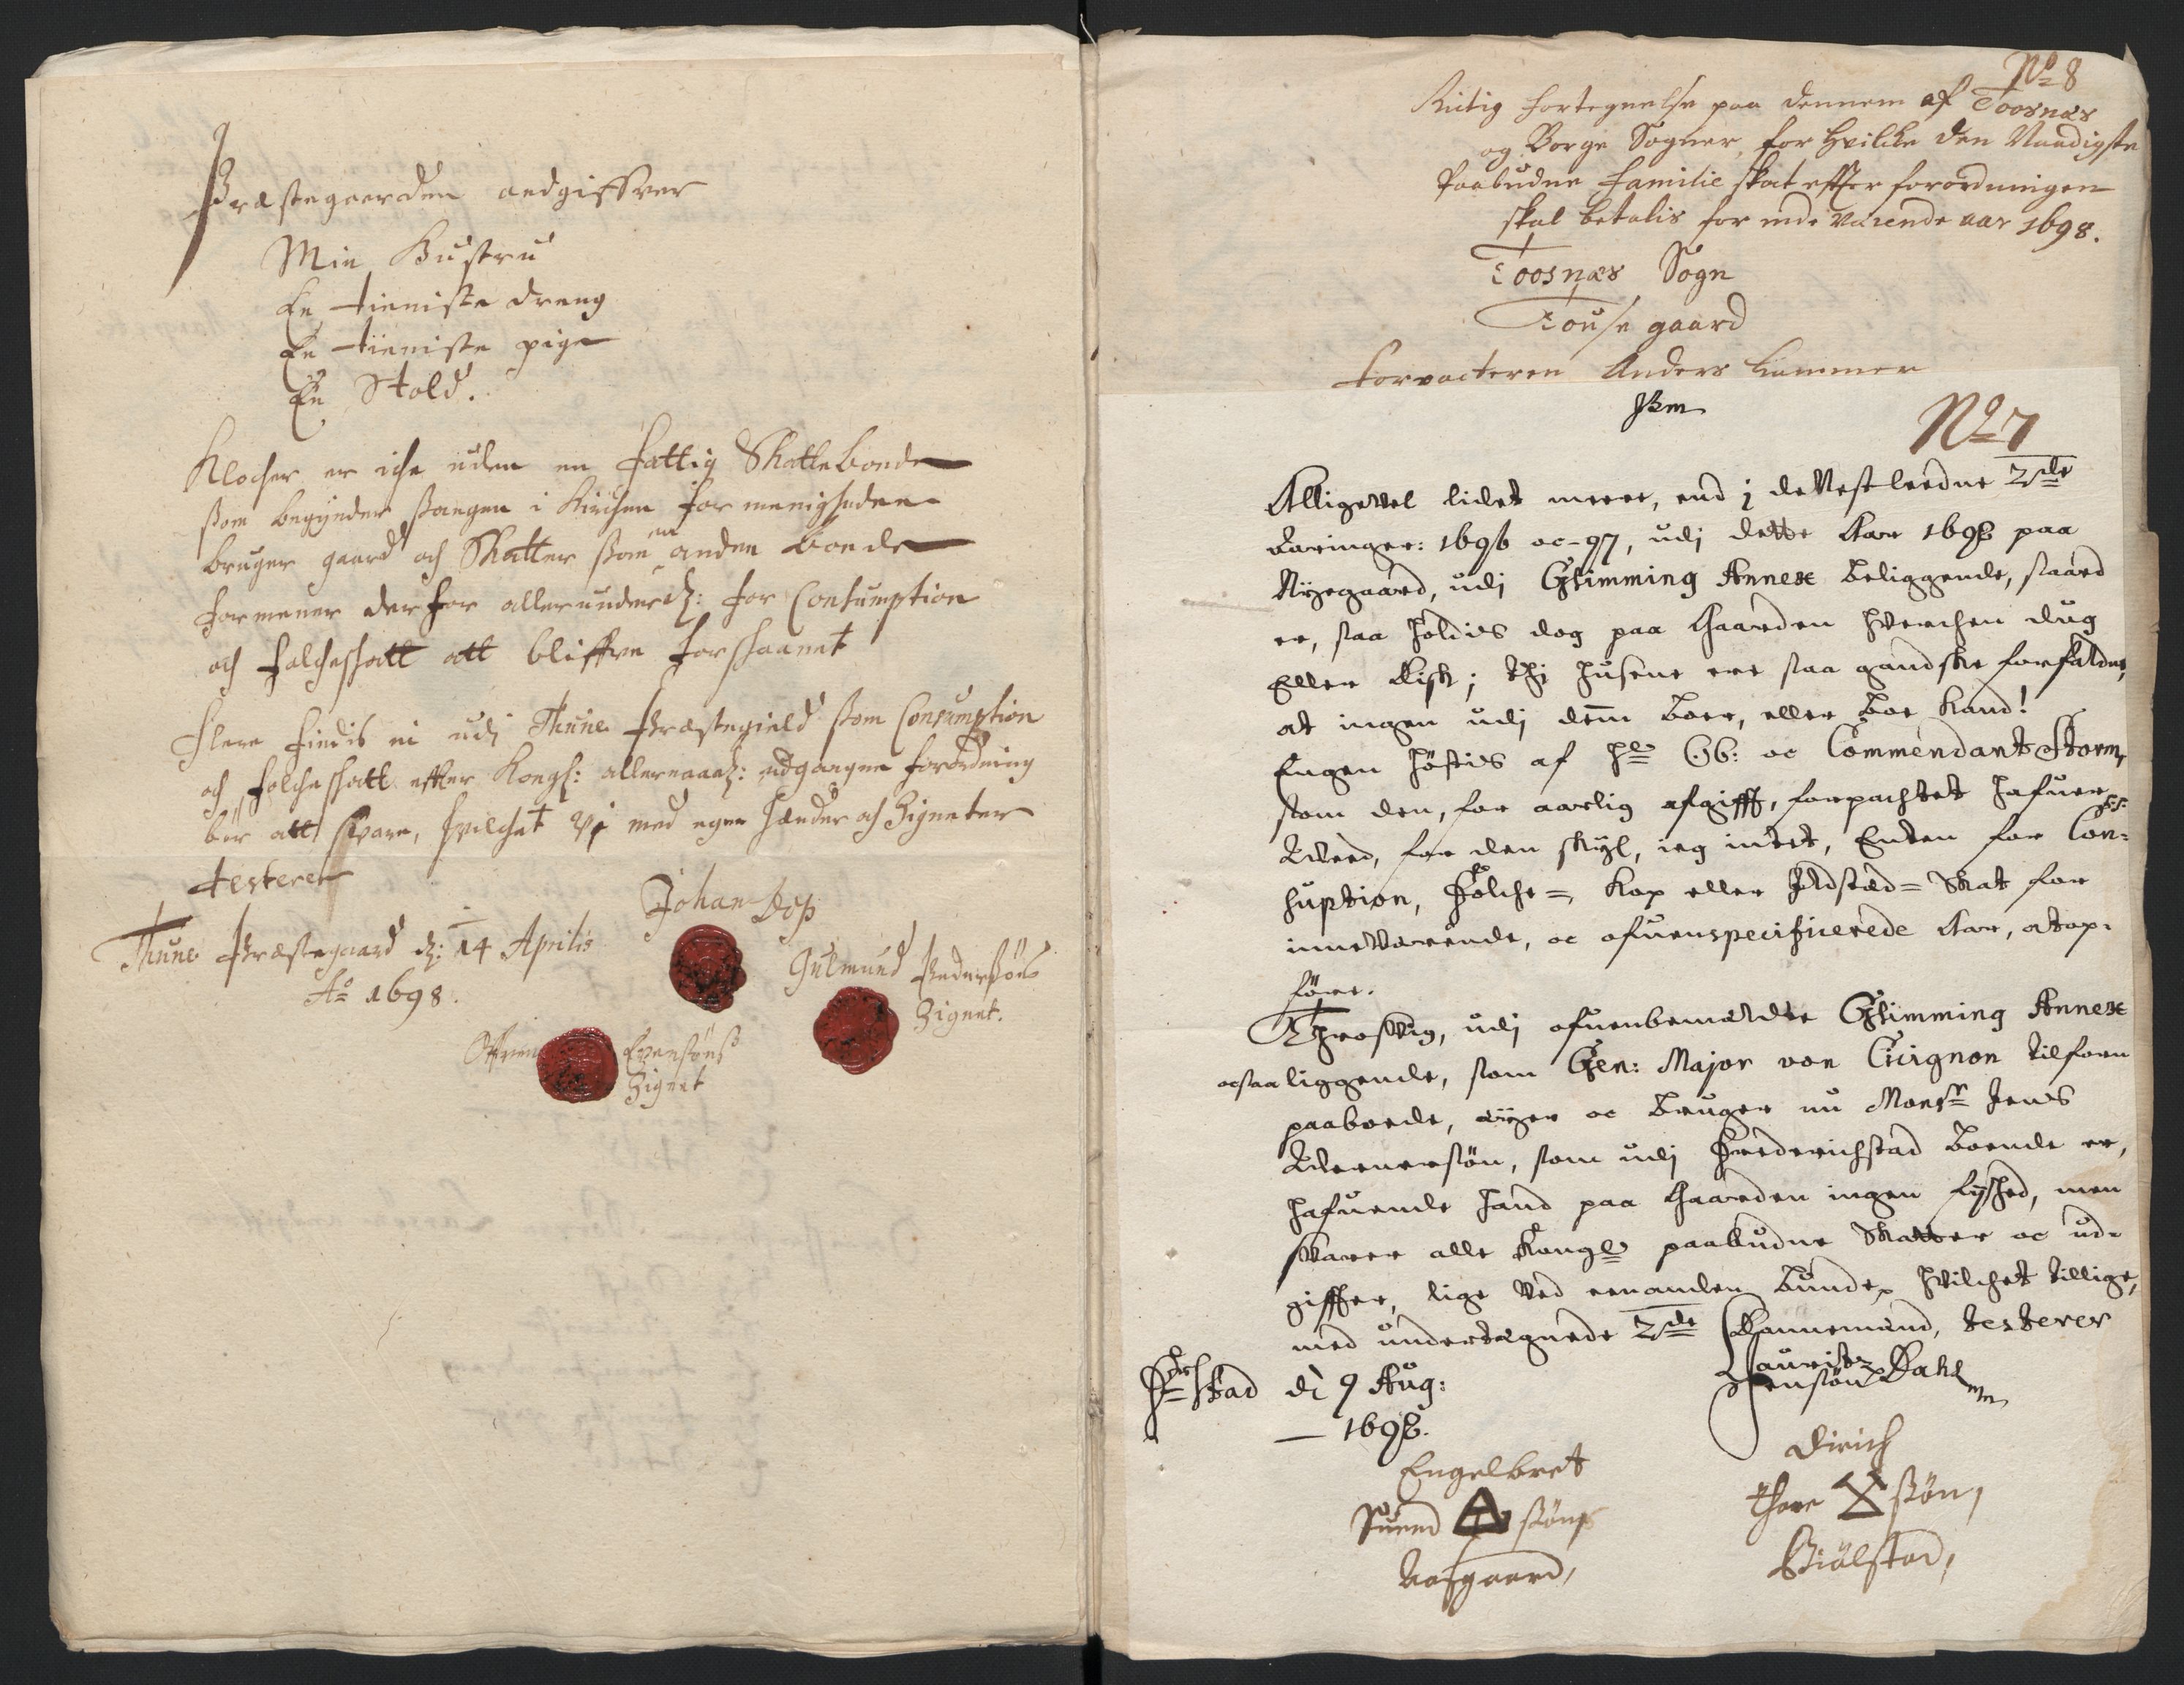 Præstegaarden andgiffver
Min Hustru
En tieniste dreng
En tieniste pige
En Stold.
Klocher er iche uden en fattig Skattebonde
som begynder sangen i Kirchen for menigheden
bruger gaard och Skatter som en anden bonde
formener derfor allerunderd: for Consumption
och folcheskatt att bliffve forskaanet
Flere findis ei udj Thune Præstegield som Consumption
och folcheskatt effter Kongl: allernaad: udgangne forordning
bør att svare, hvilchet vj med egne hænder och Zigneter
testerer
Thune Præstegaard d: 14 Aprilis
Ao 1698.
Johan
Gulmund Pedersøns
Zignet.
Evensøns
Zignet
No 8
Rictig fortegnelse paa dennem af Toosnæs
og Borge Sogner, for hvilcke den Naadigste
Paabudne familie skat effter forordningen
skal betalis for inde værende aar 1698.
Toosnæs Sogn
Touse gaard
Forvacteren Anders Lammer
No 7
Alligevel lidet meere, end j de Nest leedne 2de
Aaringer: 1696 oc -97, udj dette Aar 1698 paa
Nyegaard, udj Glimming Annex beliggende, saaed
er, saa holdis dog paa Gaarden hverchen dug
eller disk; thj husene ere saa gandske forfaldne,
at ingen udj dem boer, eller boe kand!
Engen høstis af hr Ob: oc Commendant Storm,
som den, for aarlig afgifft, forpachtet hafuer
Woed, for den skyl, ieg intet, Enten for Con=
suption, Folche=, Kop eller Ildsted= Skat for
inneværende, oc ofuenspecificerede Aar, at op=
føre.
Throsvig, udj ofuenbemældte Glimming Annex
ocsaa liggende, som Gen: Major von Cicignon tilforn
paaboede, ejer oc bruger nu Monsr Jens
Wernersøn, som udj Frederichstad boende er,
hafuende hand paa Gaarden ingen hyshed, men
svarer alle Kongl paabudne Skatter oc ud=
giffter, lige ved een anden bonde, hvilchet tillige,
med undertegnede 2de Dannemænd, testerer
Fr:stad d 9 Aug:
1698.
Lauritz
Jensøn Dahl
Engelbret
Suend søns
Aasgaard,
Dirich
Thore søn,
Biølstad,